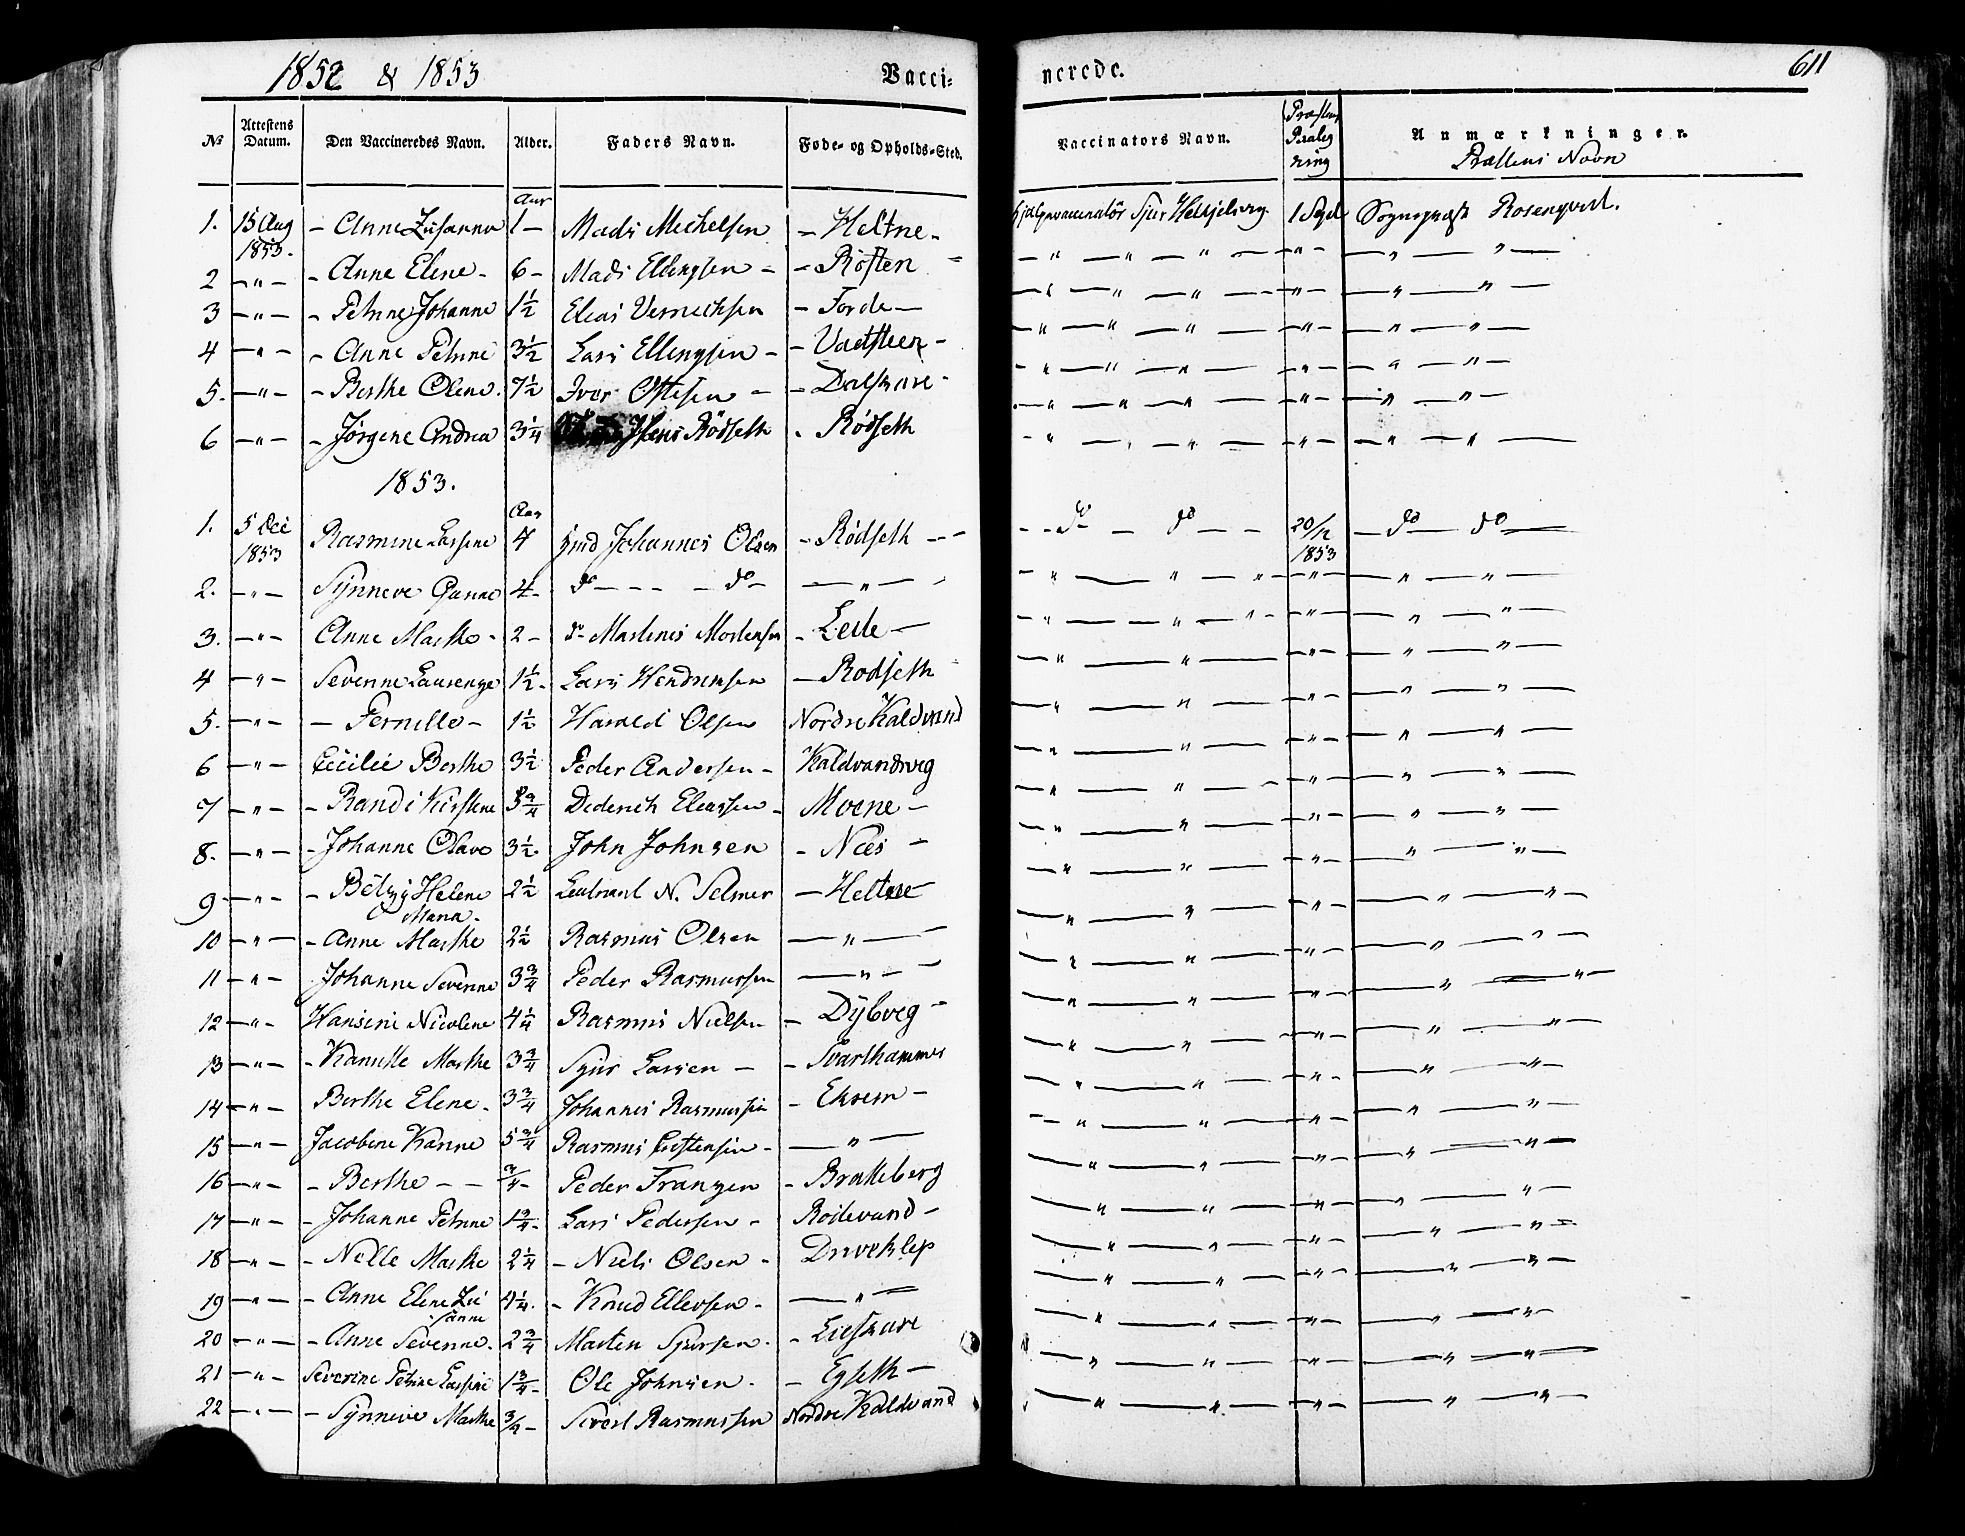 1852 & 1853 Vacci= nerede. 611
№ Attestens Datum. Den Vaccineredes Navn. Alder. Faders Navn. Føde- og Opholds-Sted. Vaccinators Navn. Anmærkninger.
Præstens Navn
Aar
1. 15 Aug 1853. - Anne Zusanna 1 - Mads Michelsen - Heltne - Hjelpevaccinatör Sjur 1 Sept Sognepræst Rosenqvist.
2 - " - - Anne Elene - 6 - Mads Ellingsen - - Rösten - " - " - " - " - - " - - " - " -
3 - " - - Petrine Johanne 1½ Elias Vernichsen - Forde - - " - " - " - - " - - " - " -
4 - " - - Anne Petrine 3½ Lars Ellingsen - - Vadsteen - - " - " - " - - " - - " - " -
5. - " - - Berthe Olene. 7½ Iver Ottesen - - Dalskare - - " - " - " - - " - - " - " -
6 - " - - Jörgene Andrea 3¼ Jens Rödseth - Rödseth - " - " - " - - " - - " - " -
1853.
Aar
1. 5 Dec 1853 Rasmine Lassine 4 Gmd Johannes Olsen - Rödseth - - - do - do - - 20/12 1853 - do - do -
2. - " - Synneve 4 - do - - - - do - - " - - " - " - " - - " - - " - " -
3. - " - Anne Marthe - 2 - do Martines Mortensen - Leite - - " - " - " - - " - - " - " -
4 - " - Severine Laurense 1½ - Lars Hendriksen - Rodseth - - " - " - - " - - " - " -
5. - " - - Pernille - 1½ Harald Olsen Nordre Kaldvand - " - " - - " - - " - " -
6 - " - Cecilie Berthe 3½ Peder Andersen - Kaldvandveg - " - " - - " - - " - " -
7 - " - - Randi Kirstine 3¾ Diderich Eliassen - Moene - - " - " - - " - - " - " -
8. - " - - Johanne Olave 3½ John Johnsen - Nees - - " - " - - " - - " - " -
9 - " - - Betzy Helene Maria - 2½ Leutnant N. Selmer - Heltne - - " - " - - " - - " - " -
10 - " - - Anne Marthe 2½ Rasmus Olsen - " - - " - " - - " - - " - " -
11 - " - Johanne Severine 3¾ Peder Rasmussen - " - - " - " - - " - - " - " -
12 - " - Hansine Nicoline 4¼ Rasmus Nielsen - Dybveg - - " - " - - " - - " - " -
13 - " - - Kanutte Marthe 3¾ Sjur Larsen - - Svarthammer - " - " - - " - - " - " -
14 - " - Berthe Elene - 3¾ Johannes Rasmussen - Eksem - - " - " - - " - - " - " -
15 - " - Jacobine Hanne 5¾ Rasmus Cristensen - - " - - " - " - - " - - " - " -
16 - " - - Berthe - - ¾ - Peder Franzen - Brakeberg - " - " - - " - - " - " -
17 - " - - Johanne Petrine 1¾ - Lars Pedersen - Rödevand - - " - " - - " - - " - " -
18 - " - - Nelle Marthe 2¼ - Niels Olsen - Driveklep - " - " - - " - - " - " -
19 - " - - Anne Elene Zusanne 4¼. - Knud Ellevsen - - " - - " - " - - " - - " - " -
20 - " - - Anne Severine. 2¾ Marten Sjursen - - Lieskare - " - " - - " - - " - " -
21 - " - Severine Petrine Lassine 1¾ - Ole Johnsen - - Egseth - - " - " - - " - - " - " -
22 - " - - Synneve Marthe ¾ - Sivert Rasmussen Nordre Kaldvand - " - " - - " - - " - " -